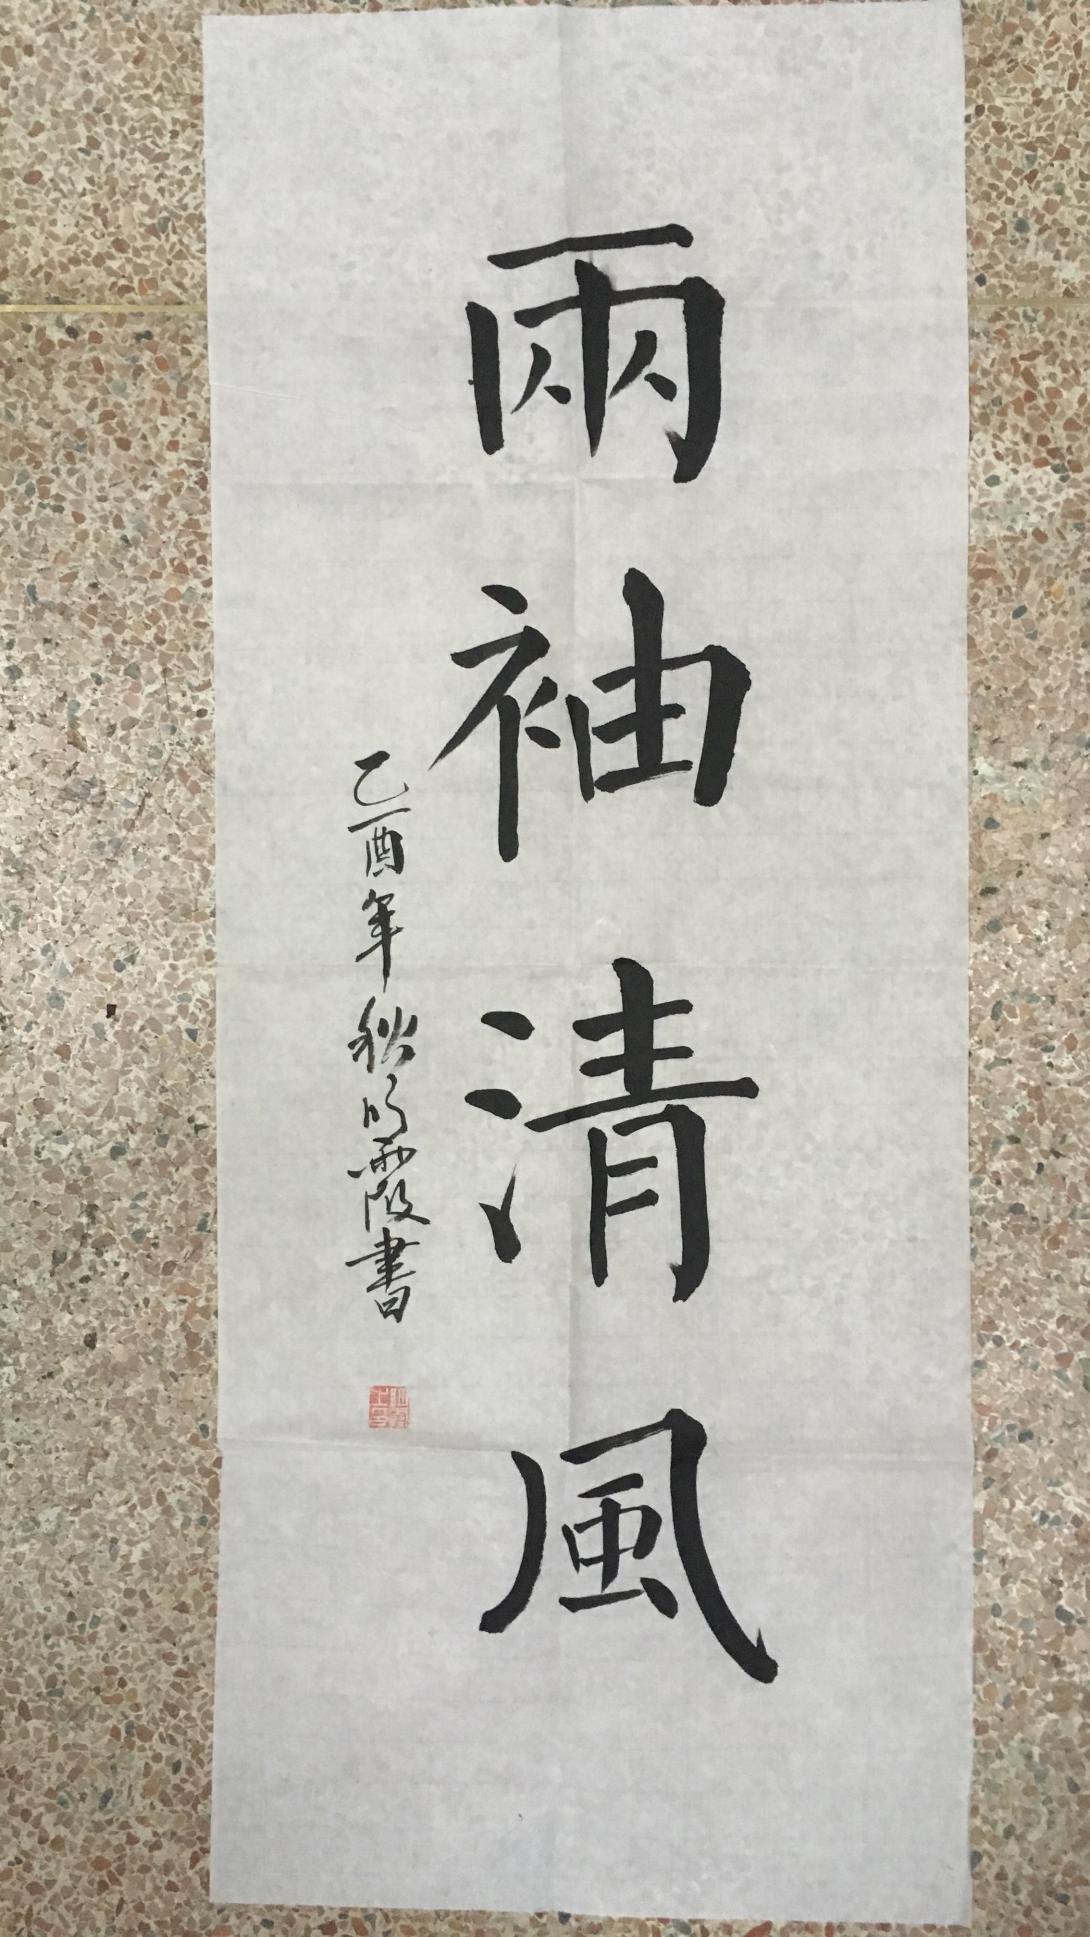 兩袖清風
乙酉年秋明霞書